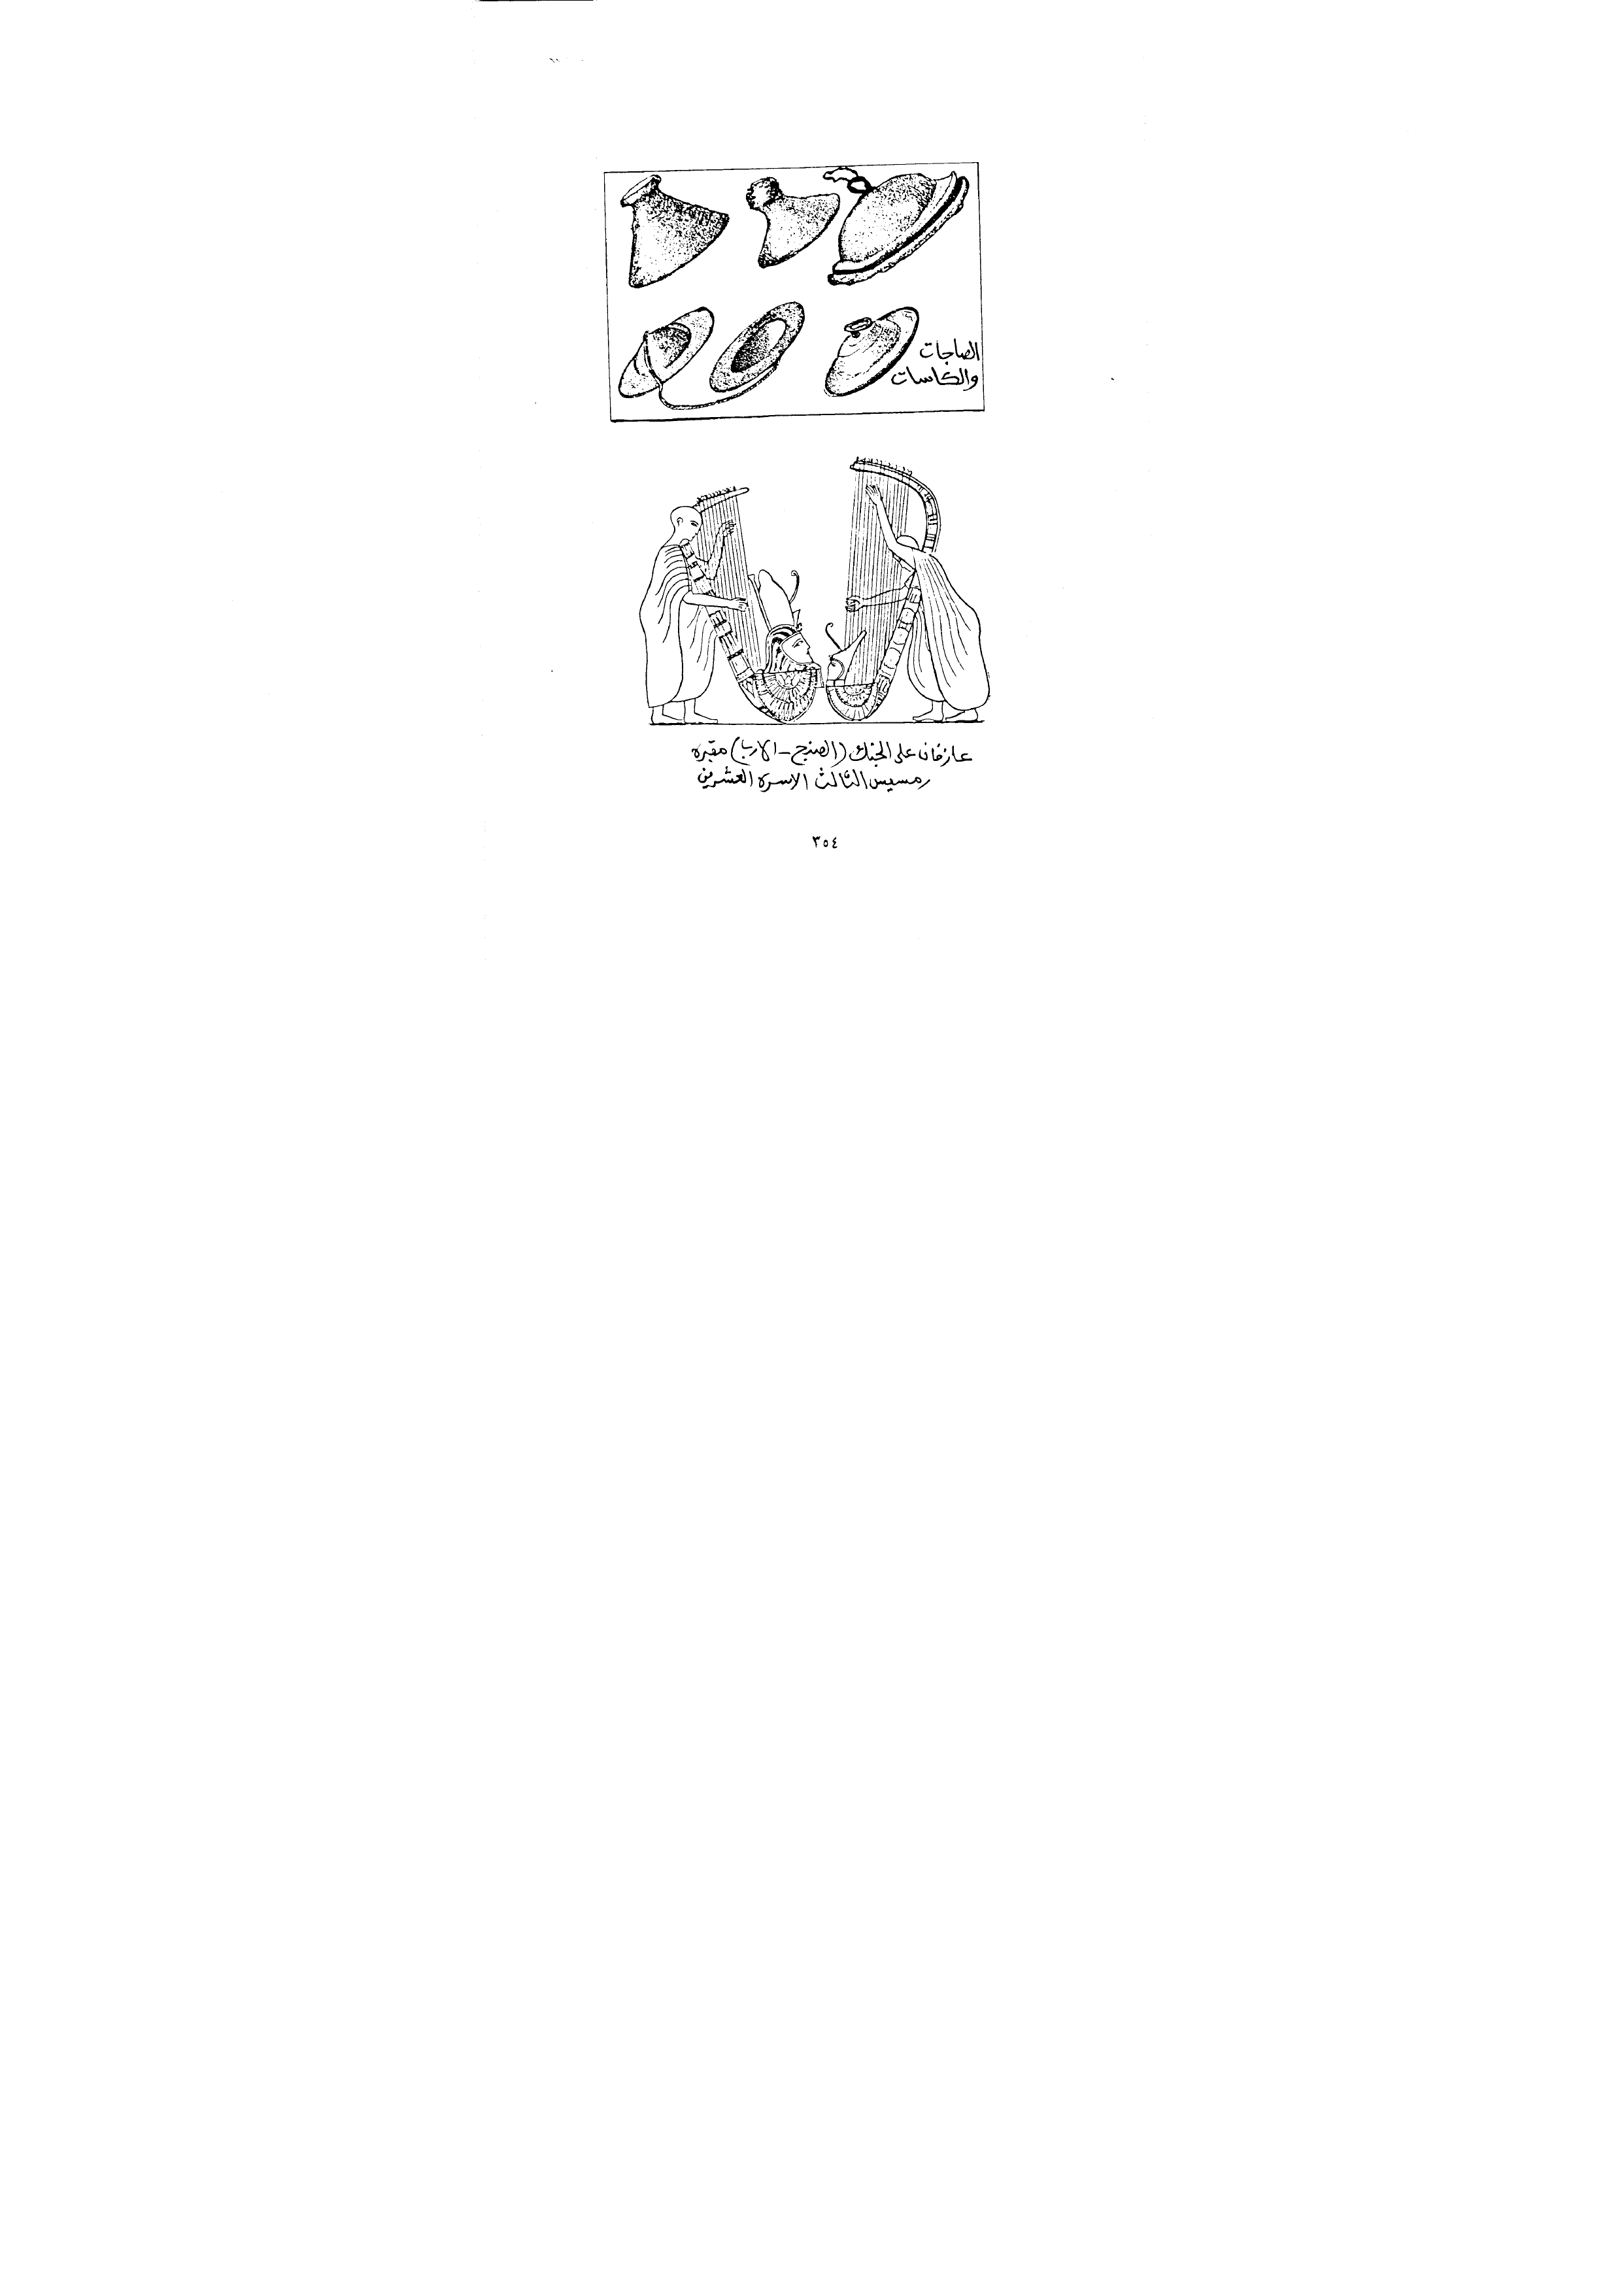 الصاجات
والكاسات
عازفان على الجنك (الصنج - الارب) مقبره
رمسيس الثالث الاسرة العشرين
٣٥٤